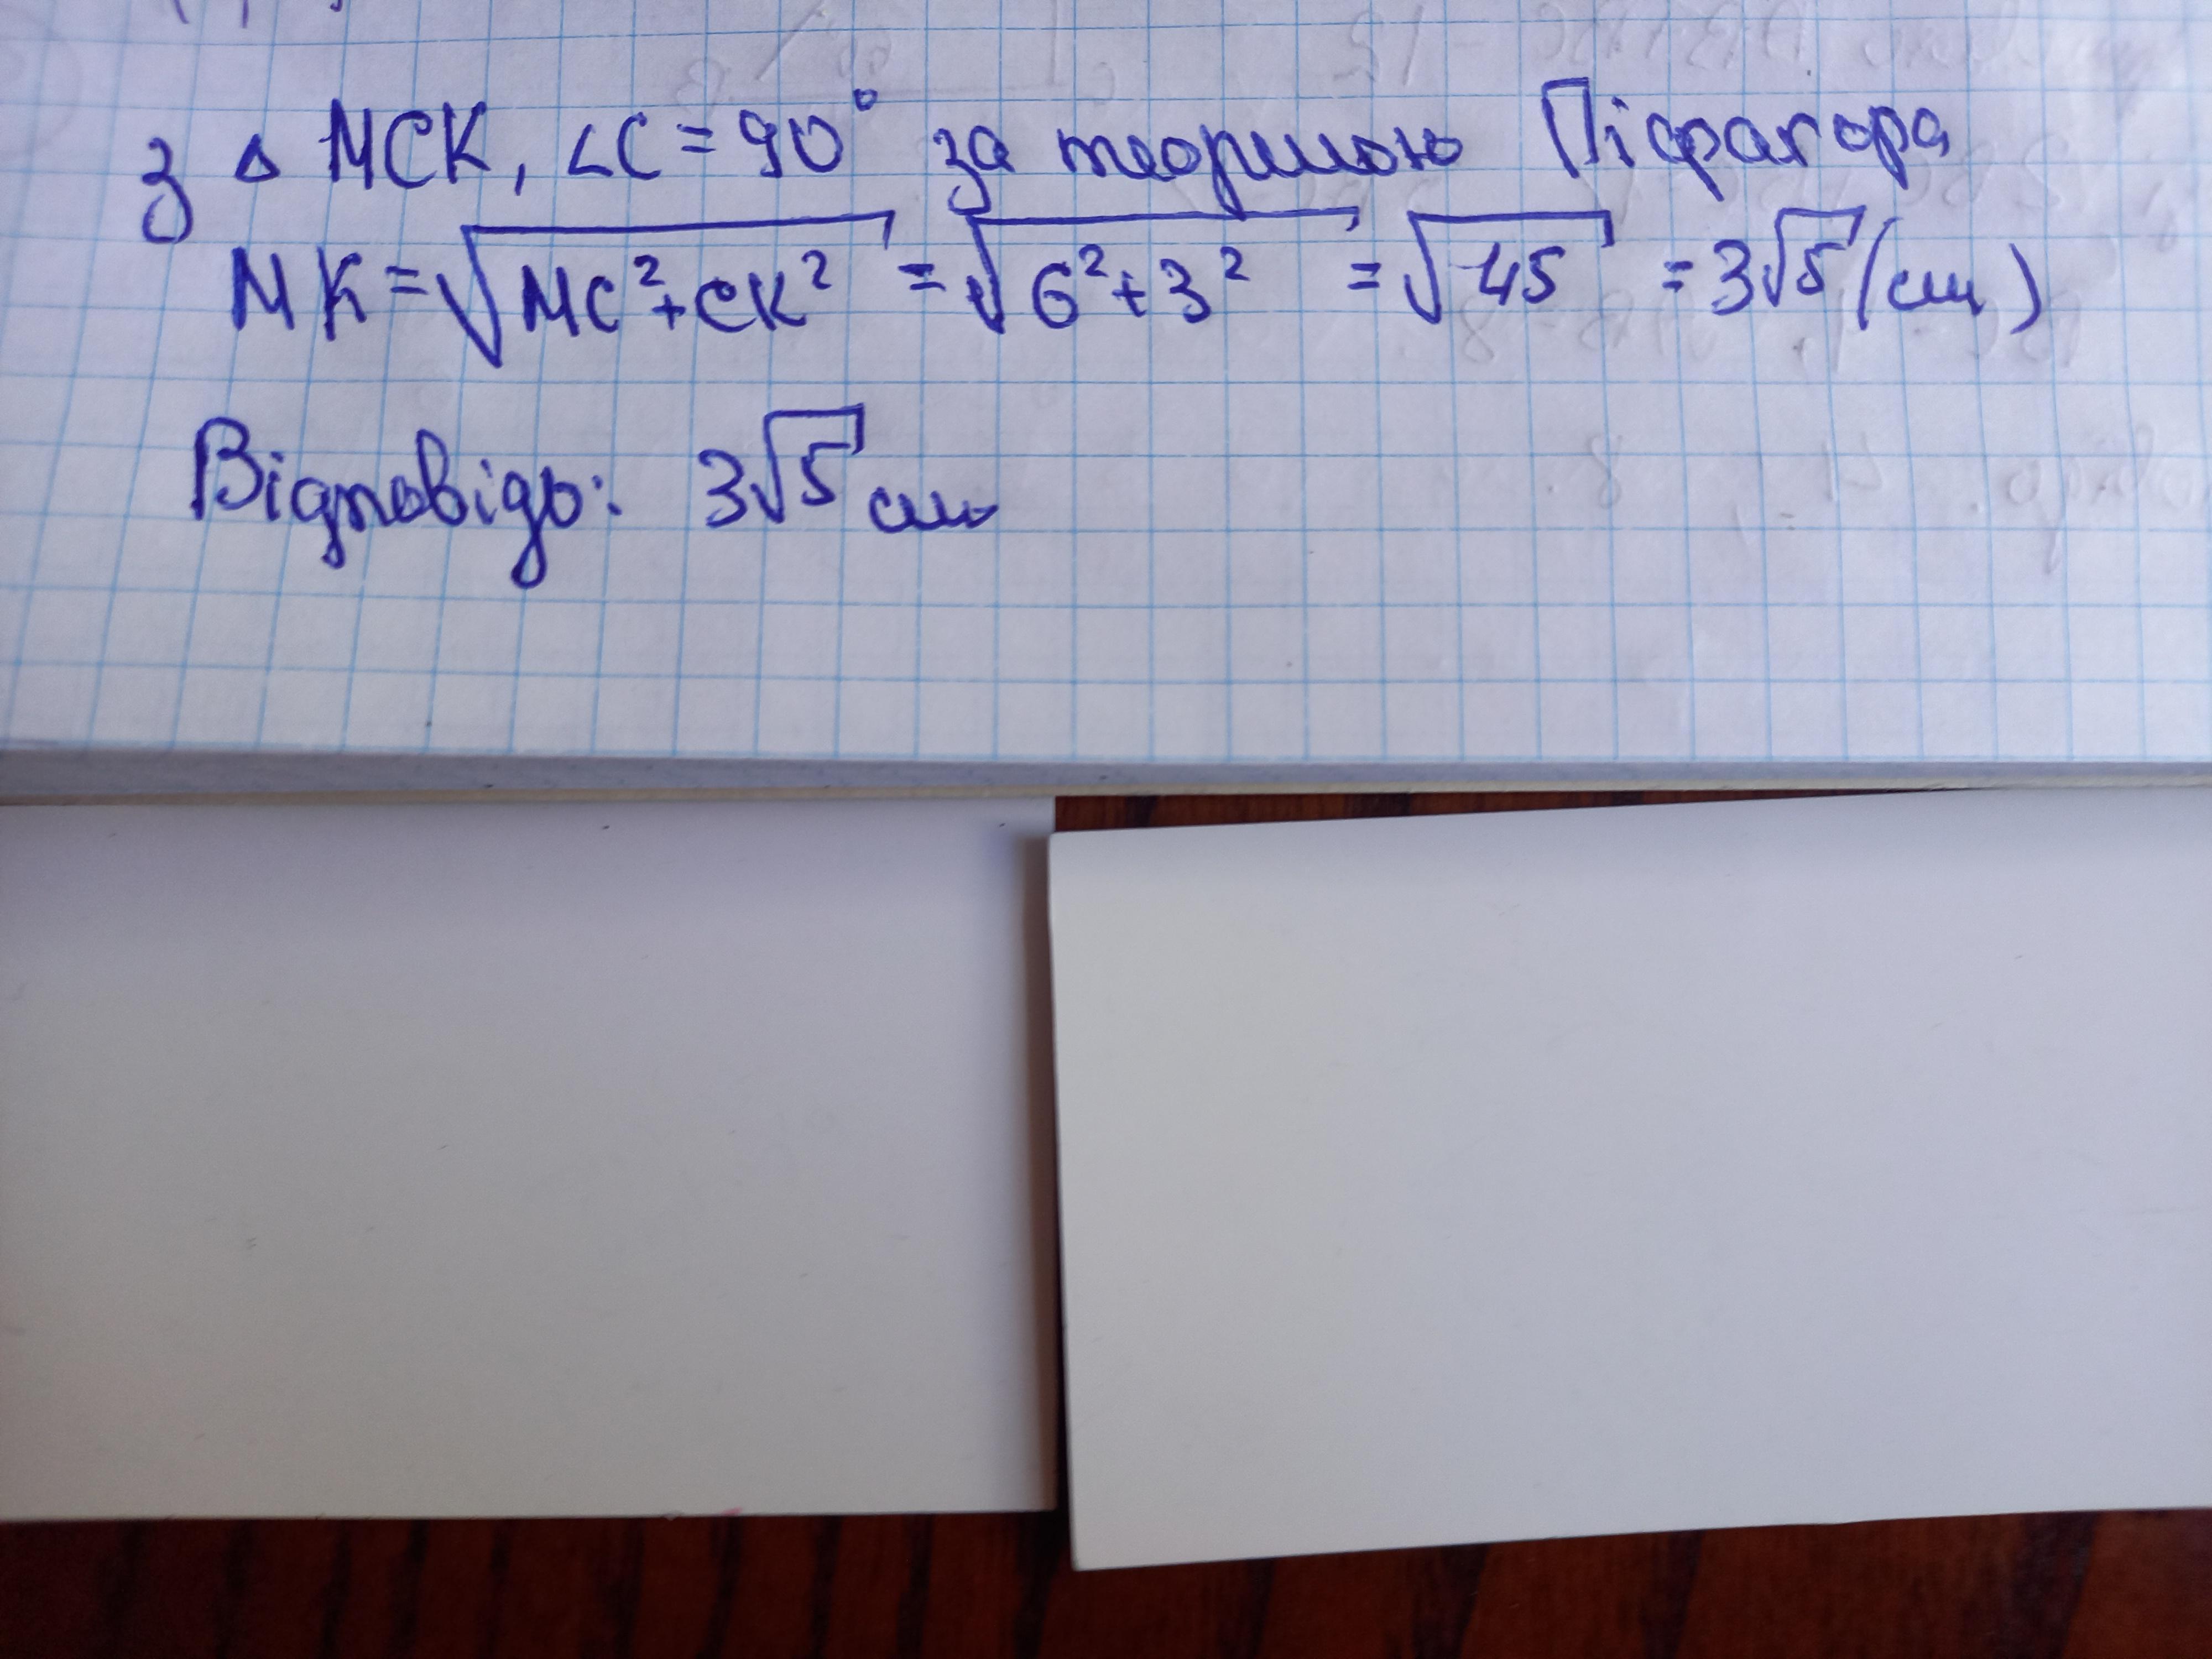 з △ MCK, ∠C = 90° за теоремою Піфагора
MK = √(MC² + CK²) = √(6² + 3²) = √45 = 3√5 (см)
Відповідь: 3√5 см